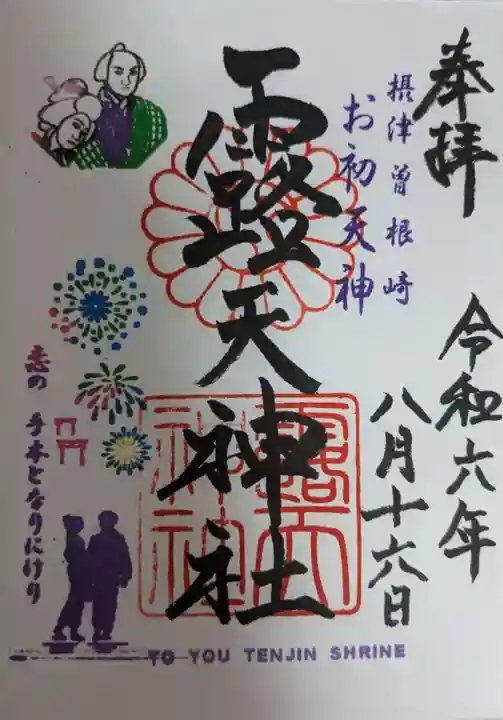 奉拝
摂津曽根崎
お初天神
令和六年
八月十六日
露天神社
露天神社
恋の手本となりにけり
TO YOU TENJIN SHRINE